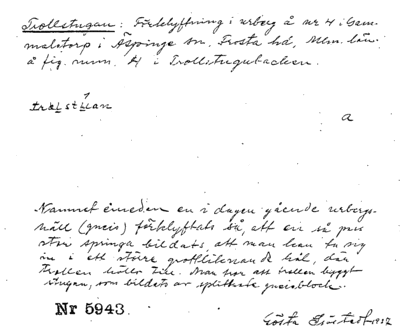 Trollstugan: Förklyftning i urberg å nr 4 i Gam-
malstorp i Äspinge sn. Frosta hd, Mlm. län
å fig. num. 4 i Trollstugubacken.
a
Namnet emedan en i dagen gående urbergs-
häll (gneis) förklyftats så, att en så pass
stor springa bildats, att man kan ta sig
in i ett större grottliknande hål, där
trollen hållit till. Man tror att trollen byggt
stugan, som bildats av splittrade gneisblock.
Nr 5943.
Gösta 1932